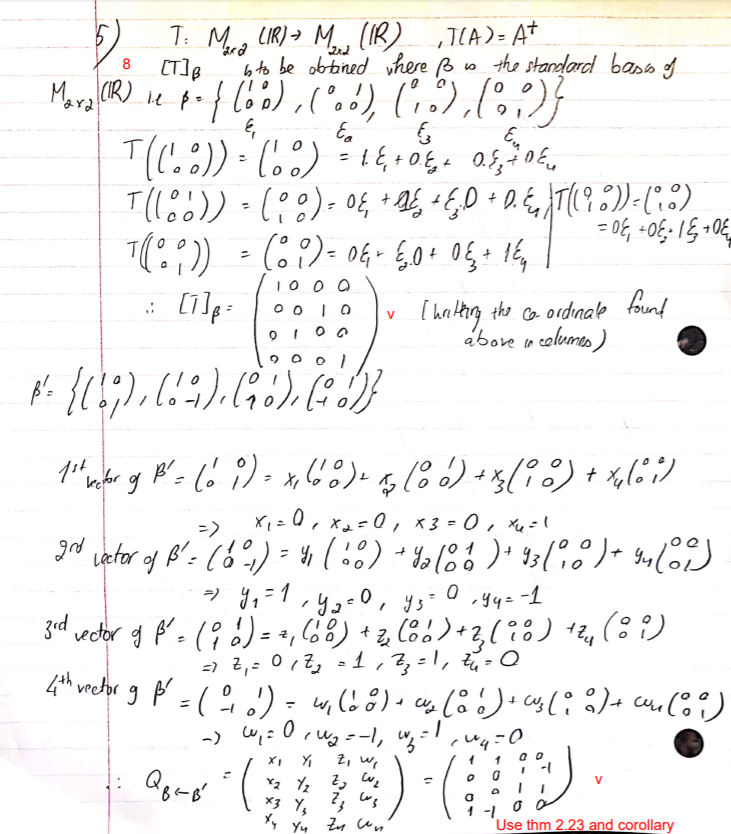 5) T: M₂ₓ₂ (IR) → M₂ₓ₂ (IR) , T(A) = Aᵗ
8 [T]β is to be obtained where β is the standard basis of
M₂ₓ₂ (IR) i.e β = { (1 0; 0 0), (0 1; 0 0), (0 0; 1 0), (0 0; 0 1) }
ε₁ ε₂ ε₃ ε₄
T((1 0; 0 0)) = (1 0; 0 0) = 1.ε₁ + 0.ε₂ + 0.ε₃ + 0ε₄
T((0 1; 0 0)) = (0 0; 1 0) = 0ε₁ + 0ε₂ + ε₃.0 + 0.ε₄ | T((0 0; 1 0)) = (0 0; 1 0)
= 0ε₁ + 0ε₂ + 1ε₃ + 0ε₄
T((0 0; 0 1)) = (0 0; 0 1) = 0ε₁ + ε₂.0 + 0ε₃ + 1ε₄
∴ [T]β = (1 0 0 0; 0 0 1 0; 0 1 0 0; 0 0 0 1) v (Writing the co-ordinate found
above in columns)
β' = { (1 0; 0 1), (1 0; 0 -1), (0 1; 1 0), (0 1; -1 0) }
1st vector of β' = (1 0; 0 1) = x₁ (1 0; 0 0) + x₂ (0 1; 0 0) + x₃ (0 0; 1 0) + x₄ (0 0; 0 1)
=> x₁ = 0, x₂ = 0, x3 = 0, x₄ = 1
2nd vector of β' = (1 0; 0 -1) = y₁ (1 0; 0 0) + y₂ (0 1; 0 0) + y₃ (0 0; 1 0) + y₄ (0 0; 0 1)
=> y₁ = 1, y₂ = 0, y₃ = 0, y₄ = -1
3rd vector of β' = (0 1; 1 0) = z₁ (1 0; 0 0) + z₂ (0 1; 0 0) + z₃ (0 0; 1 0) + z₄ (0 0; 0 1)
=> z₁ = 0, z₂ = 1, z₃ = 1, z₄ = 0
4th vector of β' = (0 1; -1 0) = w₁ (1 0; 0 0) + w₂ (0 1; 0 0) + w₃ (0 0; 1 0) + w₄ (0 0; 0 1)
-> w₁ = 0, w₂ = -1, w₃ = 1, w₄ = 0
∴ Q B←B' = (x₁ y₁ z₁ w₁; x₂ y₂ z₂ w₂; x₃ y₃ z₃ w₃; x₄ y₄ z₄ w₄) = (1 1 0 0; 0 0 1 -1; 0 0 1 1; 1 -1 0 0) v
Use thm 2.23 and corollary